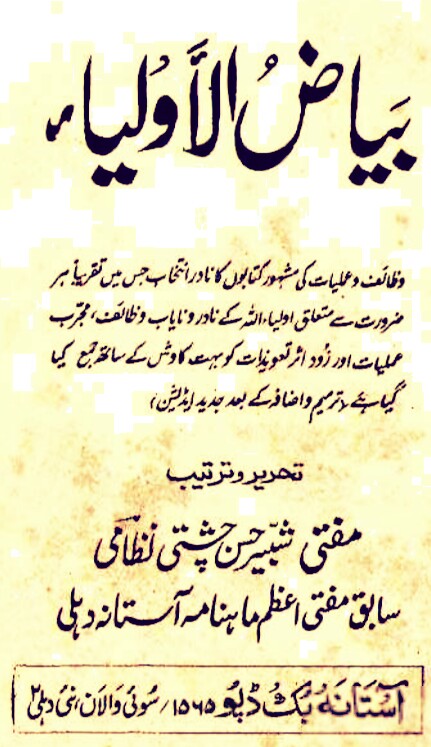 بَیَاضُ الْاَوْلِیَاء
وظائف وعملیات کی مشہور کتابوں کا نادر انتخاب جس میں تقریباً ہر
ضرورت سے متعلق اولیاء اللہ کے نادر و نایاب وظائف، مجرّب
عملیات اور زُود اثر تعویذات کو بہت کاوش کے ساتھ جمع کیا
گیا ہے (ترمیم واضافہ کے بعد جدید ایڈیشن)
تحریر و ترتیب
مفتی شبیر حسن چشتی نظامی
سابق مفتی اعظم ماہنامہ آستانہ دہلی
آستانہ بک ڈپو ۱۵۶۵/ سوئی والان، نئی دہلی ۲